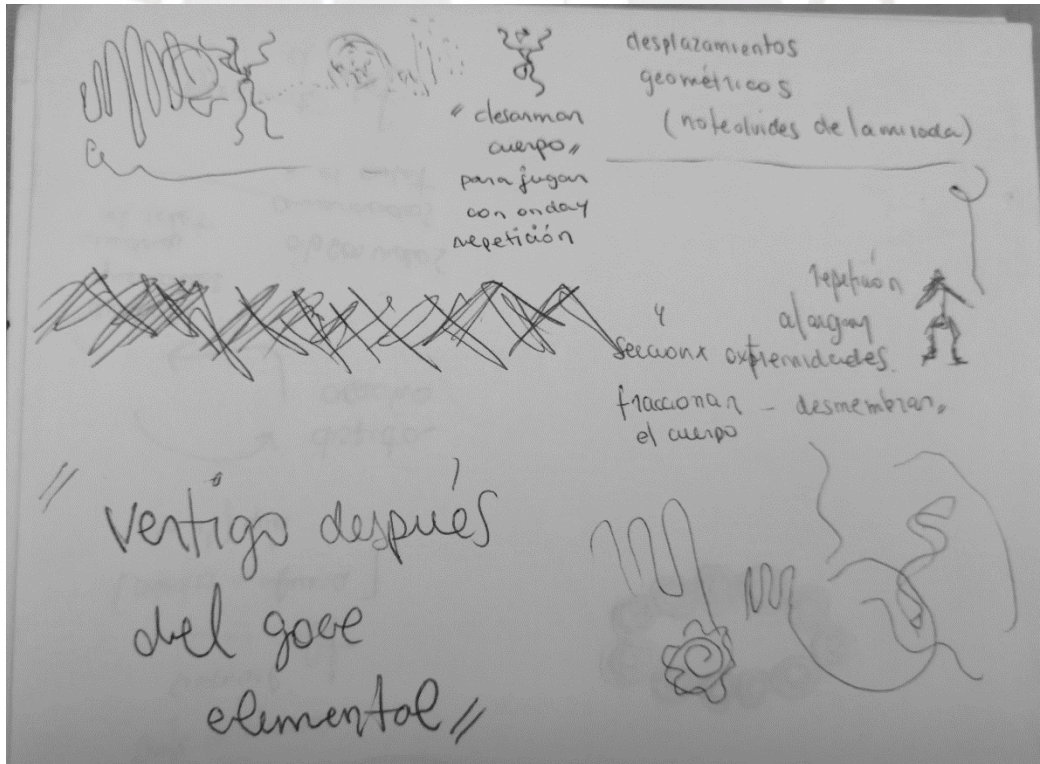 desplazamientos
geométricos
(no te olvides de la mirada)
"desarman
cuerpo"
para jugar
con onda y
repetición
repetición
alargan
y
seccionx extremidades.
fraccionar – desmembrar,
el cuerpo
"Vertigo después
del goce
elemental"